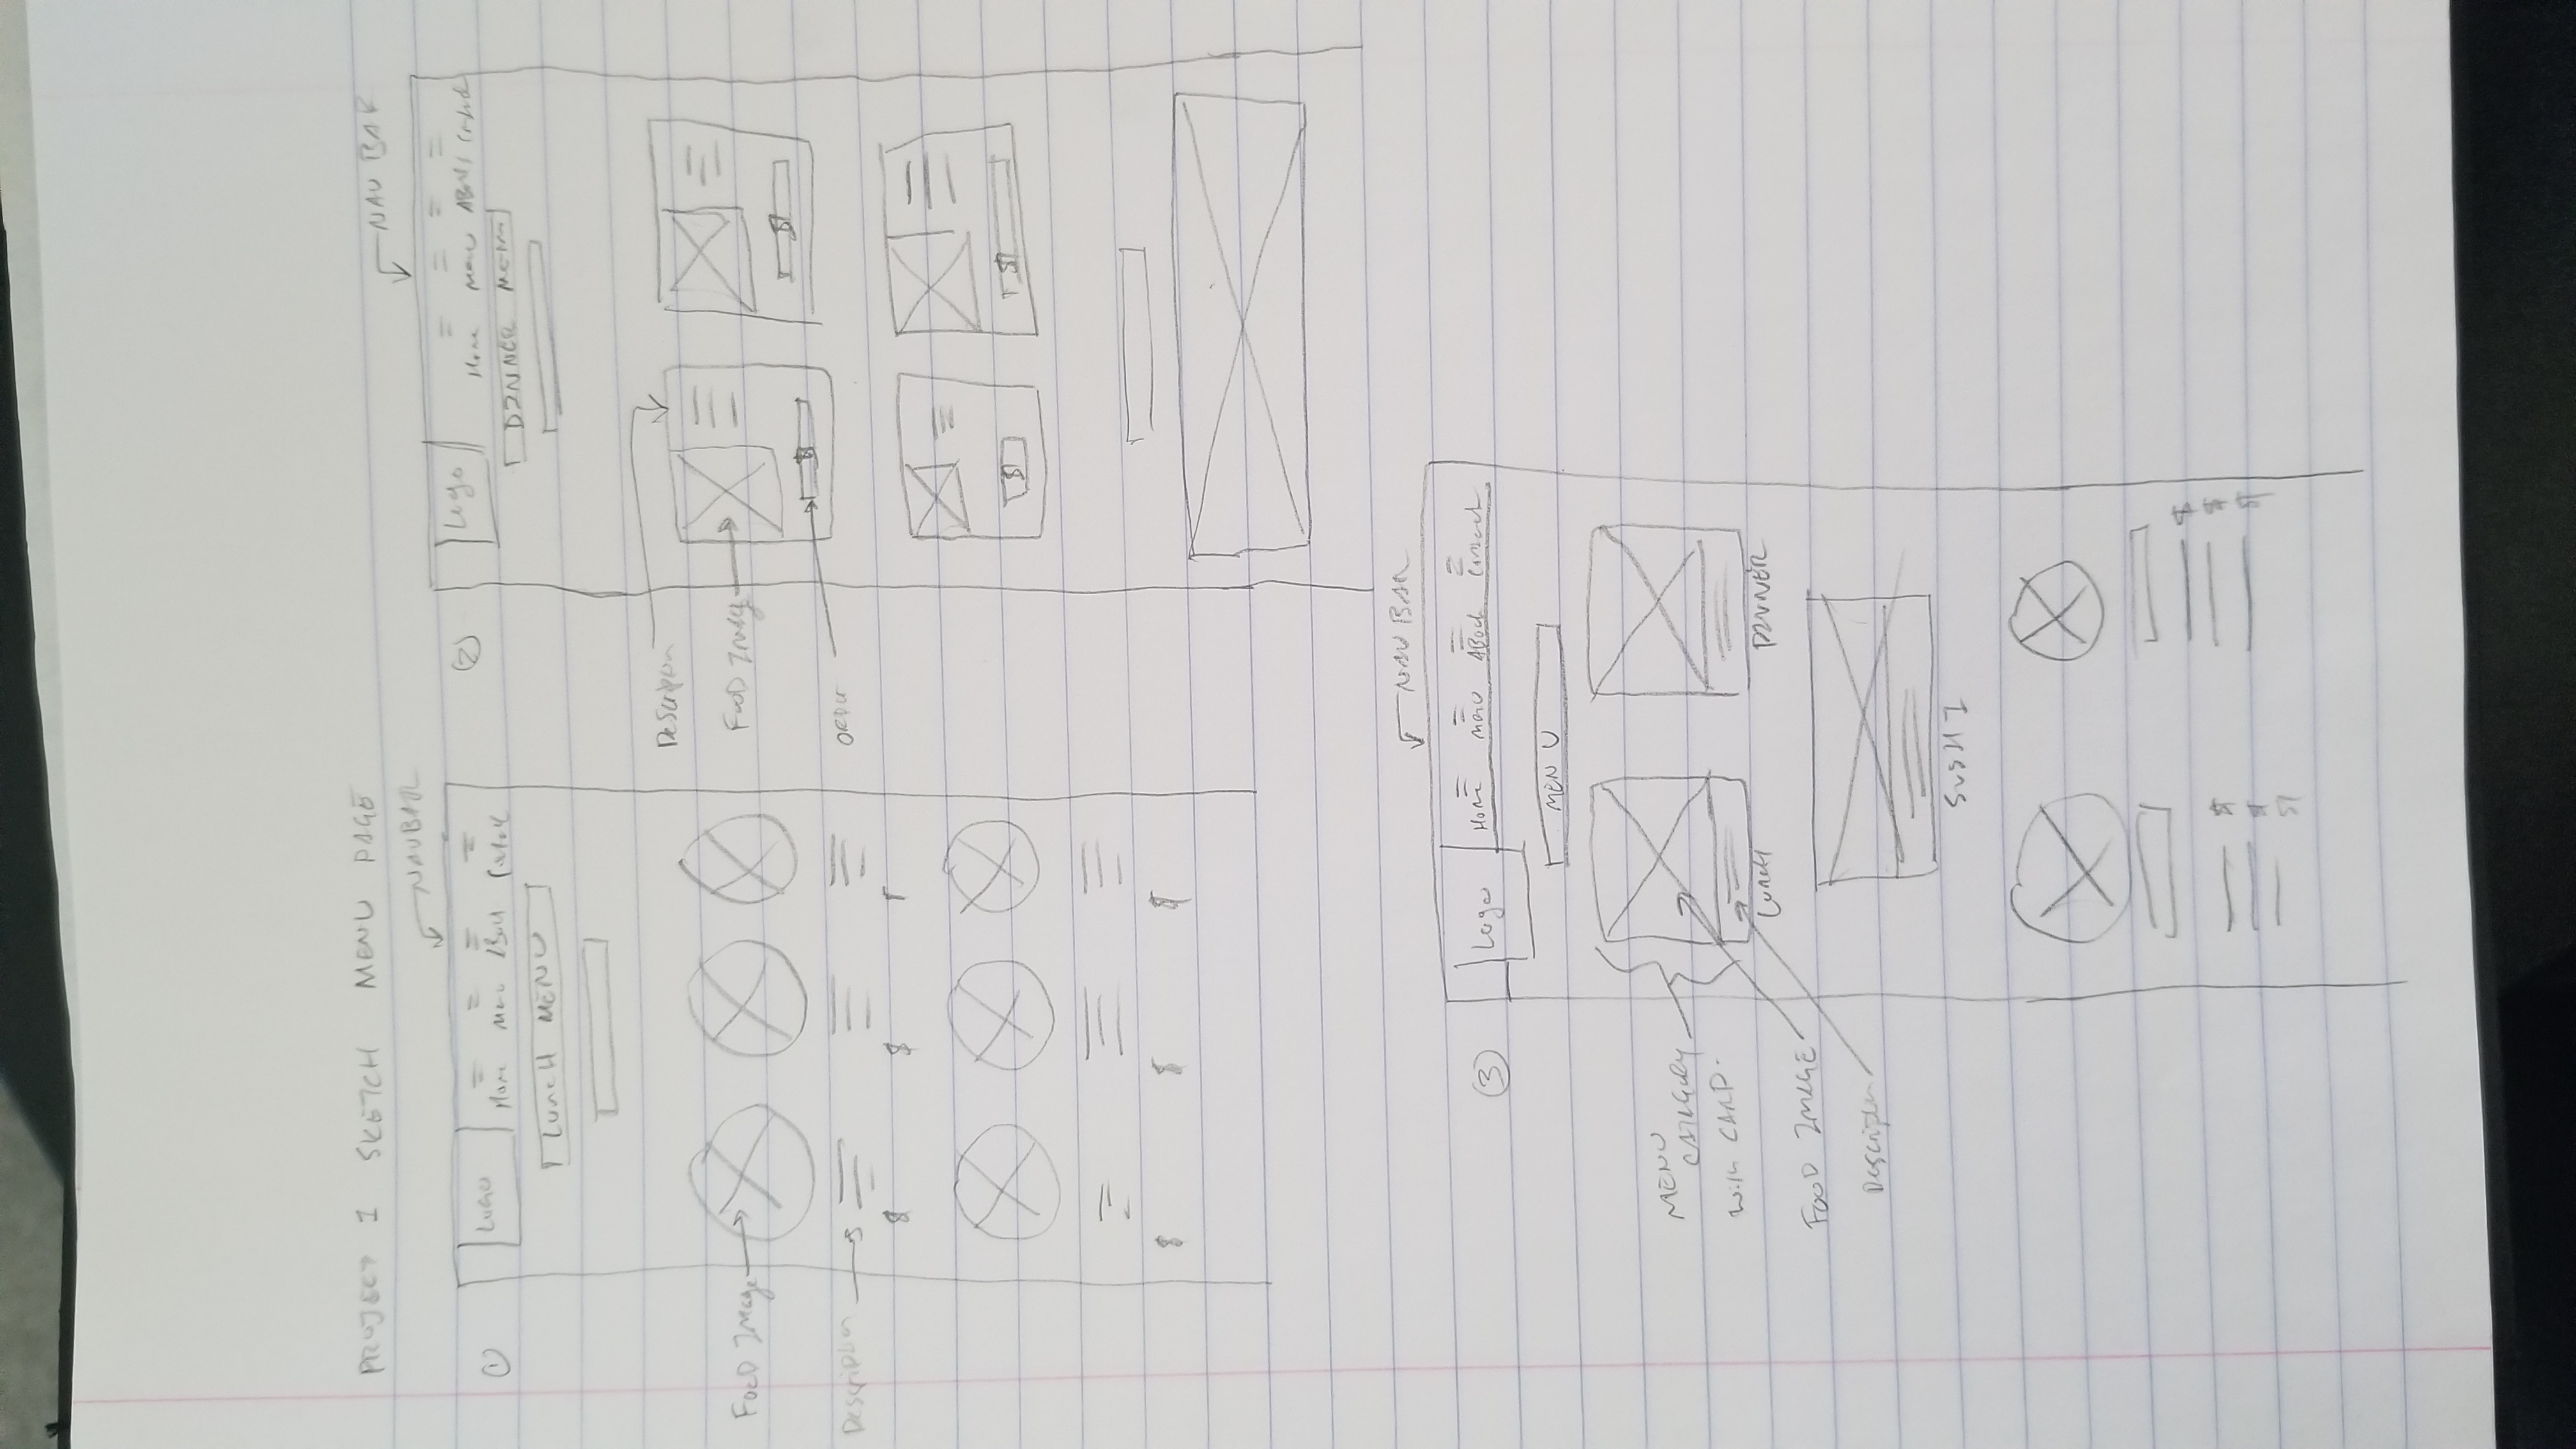 PROJECT 1 SKETCH MENU PAGE
NAVBAR
①
LOGO
Home Menu About Contact
LUNCH MENU
FOOD Image
Description
$ $ $
$ $ $
NAV BAR
②
Logo
Home Menu About Contact
DINNER MENU
Description
FOOD Image
$ $
ORDER
$ $
NAV BAR
③
Logo
Home Menu About Contact
MENU
MENU
CATEGORY
with CARD.
LUNCH DINNER
FOOD IMAGE
Description
SUSHI
$
$
$
$
$
$